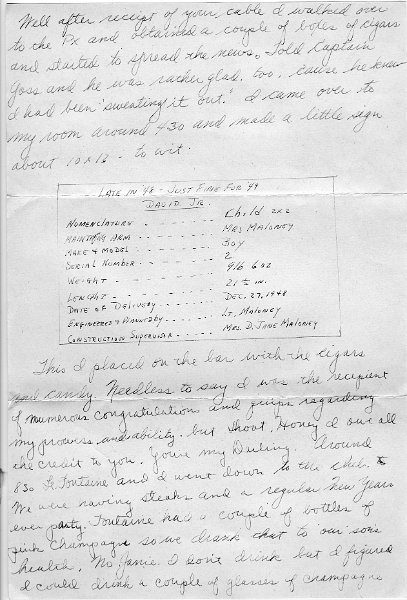 Well after receipt of your cable I walked over
to the Px and obtained a couple of boxes of cigars
and started to spread the news. Told Captain
Goss and he was rather glad, too, cause he knew
I had been "sweating it out." I came over to
my room around 430 and made a little sign
about 10x12 - to wit.
LATE IN '48 - JUST FINE FOR '49
DAVID JR.
NOMENCLATURE - - - - - - Child 2x2
MAINTAING ARM - - - - - - MRS MALONEY
MAKE & MODEL - - - - - - BOY
SERIAL NUMBER - - - - - - 2
WEIGHT - - - - - - 9lb 6oz
LENGHT - - - - - - 21½ in.
DATE OF DELIVERY - - - - - DEC. 27, 1948
ENGINEERED & PLANNED by - - - - LT. MALONEY
CONSTRUCTION SUPERVISOR - - - - MRS. D. JANE MALONEY
This I placed on the bar with the cigars
and candy. Needless to say I was the recipient
of numerous congratulations and quips regarding
my prowess and ability. but shoot, Honey I owe all
the credit to you. You're my Darling. Around
830 Lt. Fontaine and I went down to the club.
We were having steaks and a regular New Years
even party. Fontaine had a couple of bottles of
pink Champagne so we drank that to our sons
health. No Janie. I don't drink but I figured
I could drink a couple of glasses of champagne